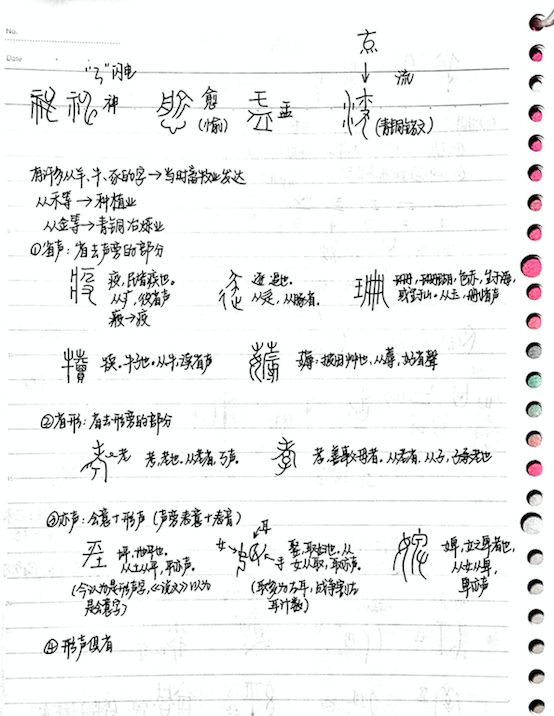 No.
Date
"ʔ"闪电
神
愈
(愉)
盂
京
↓
流
(青铜铭文)
有许多从羊、牛、豕的字→当时畜牧业发达
从禾等→种植业
从金等→青铜冶炼业
①省声：省去声旁的部分
疫，民皆疾也。
从疒，役省声
逐 追也。
从辵，从豚省。
珊，珊瑚，色赤，生于海，
或生于山。从玉，删省声
犊。牛子也。从牛，渎省声
薅：拔田艸也，从蓐，好省聲
②省形：省去形旁的部分
老
考，老也。从老省，丂声。
孝，善事父母者。从老省，从子，子承老也
③亦声：会意+形声（声旁表意+表音）
坪，地平也。
从土从平，平亦声。
(今认为是形声字，《说文》以为
是会意字)
女→
耳
娶，取妇也，从
女从取，取亦声。
婢，女之卑者也，
从女从卑，
卑亦声
④形声俱有